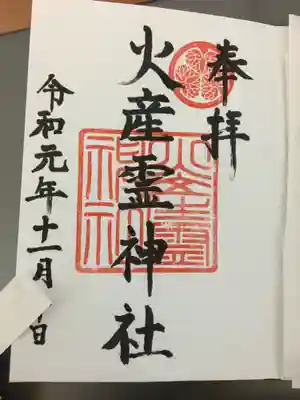 奉拝
火産霊神社
令和元年十一月 日
火産霊神社